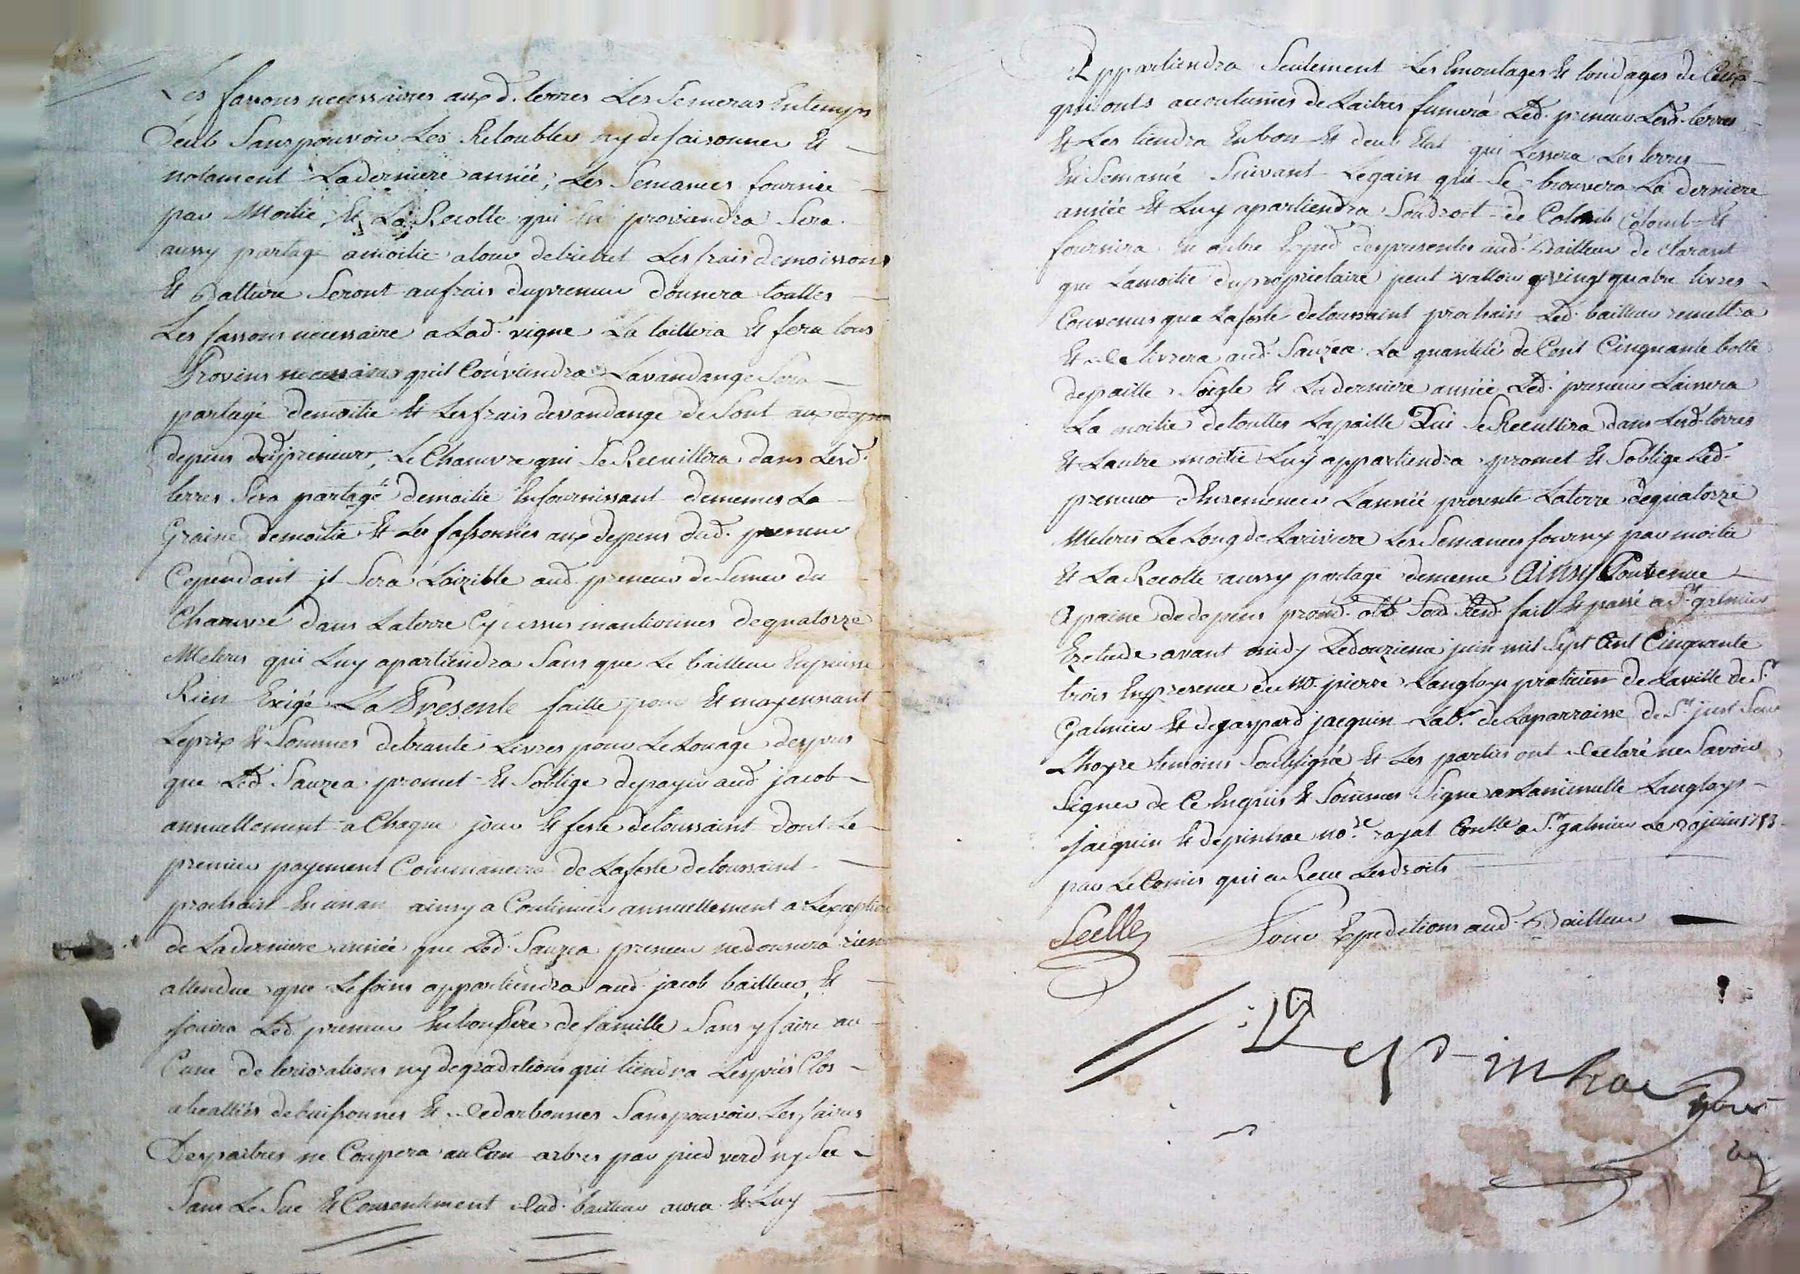 Les fassons necessaires aux d. terres Les Semeras En temps
Deub Sans pouvoir Les Retoubler ny desaisonner Et
notament La derniere année, Les Semances fournie
par Moitié Et La Recolte qui En proviendra Sera
aussy partage amoitie alors de Les frais de moissons
Et Batture Seront aufrais dupreneur donnera touttes
Les fassons necessaire a Lad. vigne La taillera Et fera tous
Provins necessaires quil Conviendra Lavandange Sera
partagé demoitie Et Les frais devandange de Sont aux
depens dud preneur, Le Chanvre qui Se Recuillira dans Lesd.
terres Sera partagé demoitie Enfournissant dememes La
Graine demoitie Et Les fassonnés aux depens dud. preneur
Cependant il Sera Loizible aud. preneur de Semer du
Chanvre dans Laterre Cy dessus mantionnes dequatorze
Meterés qui Luy apartiendra Sans que Le bailleur Enpuisse
Rien Exigé La Presente faitte pour Et moyennant
Leprix Et Sommes detrante Livres pour Le Louage després
que Led. Sauzea promet Et Soblige depayer aud. jacob
annuellement a Chaque jour Et feste detoussaint dont Le
premier payement Commancera de Lafeste detoussaint
prochaint En un an ainsy a Continuer annuellement a Lexception
de Laderniere année que Led. Sauzea preneur nedonnera rien
attendue que Lefoins appartiendra aud. jacob bailleur Et
jouira Led. preneur En bon Pere de famille Sans y faire au
Cune deteriorations ny degradations qui tiendra Lesprés Clos
abealliés debuissonnes Et dedarbonnes Sans pouvoir Les faires
Despaitres ne Coupera au Cun arbres par pied verd ny Sec
Sans Le Sue Et Consentiment dud. bailleur aura Et Luy
Appartiendra Seulement Les Emontages Et tondages de Ceux
quionts accoutumés de Laitres fumera Led. preneur Lesd. terres
Et Les tiendra En bon Et deub Etat qui Lessera Les terres
En Semance Suivant Legain qui Se trouvera La derniere
année Et Luy apartiendra Sondroit de Colomb Et
fournira En outre Exped. despresentes aud. Bailleur declarant
que Lamoitie dupropriétaire peut valloir vingt quatre livres
Convenus que Lafeste detoussaint prochain Led. bailleur remettra
Et delivrera aud. Sauzea La quantité de Cent Cinquante botte
depaille Soigle Et Laderniere année Led. preneur Laissera
La moitie detouttes Lapaille Qui Se Recullira dans Lesd. terres
Et Lautre moitie Luy appartiendra promet Et Soblige Led.
preneur dEnsemencer Lannée presente Laterre dequatorze
Meterés Le Long de Lariviera Les Semances fourny par moitie
Et La Recolte aussy partage dememe Ainsy Convenue
Apaine dedepens prom. obb. Soud. Rend. fait Et passé a St. galmier
Ezetude avant midy Ledouzieme juin mil Sept Cent Cinquante
trois Enpresence de Mo. pierre Langloys praticien de laville de St.
Galmier Et degaspard jacquin Lab.r de Laparroisse de St. just Sur
Lhoyse temoins Soubsigné Et Les parties ont declaré ne Savoir
Signer de Ce Enquis Et Sommes Signe alaminutte Langloys
Jacquin Et depinhac no.re royal Conttle a St. galmier Le 20 juin 1753
par Le Comis quien Receu Lesdroits
Scellé Pour Expeditions aud. Bailleur
Depinhac